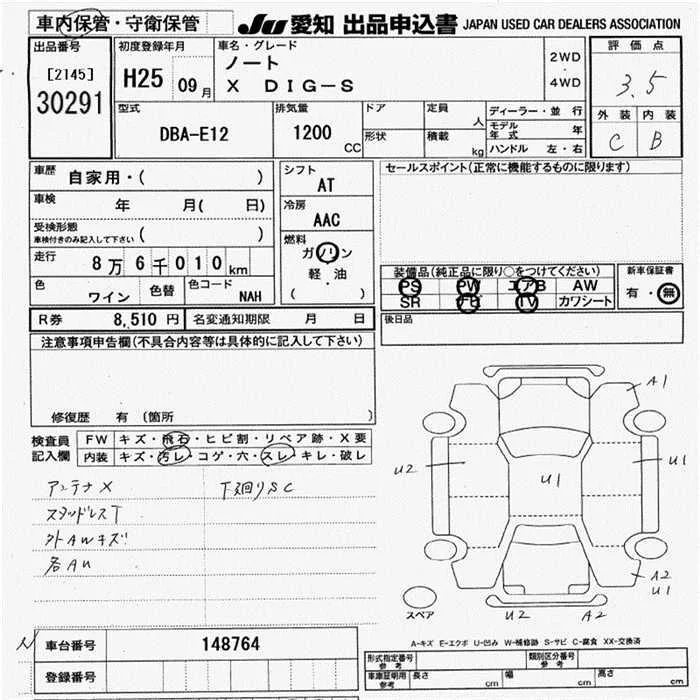 車内保管・守衛保管
JU 愛知 出品申込書 JAPAN USED CAR DEALERS ASSOCIATION
出品番号 初度登録年月 車名・グレード 評価点
[2145] H25 09月 ノート 2WD・4WD 3.5
30291 X DIG-S
型式 排気量 ドア 定員 人 ディーラー・並行 外装 内装
DBA-E12 1200 CC 形状 積載 kg モデル年式 年 C B
ハンドル 左・右
車歴 自家用・( ) シフト AT セールスポイント(正常に機能するものに限ります)
車検 年 月( 日) 冷房 AAC
受検形態
車検付きのみ記入して下さい ( ) 燃料 ガソリン
走行 8万6千010km 軽・油 装備品(純正品に限り○をつけてください) 新車保証書
色 ワイン 色替 色コード NAH ( ) PS PW エアB AW 有・無
SR FB TV カワシート
R券 8,510円 名変通知期限 月 日 後日品
注意事項申告欄(不具合内容等は具体的に記入して下さい)
修復歴 有 (箇所 )
検査員記入欄 FW キズ・飛石・ヒビ割・リペア跡・X要
内装 キズ・汚レ・コゲ・穴・スレ・キレ・破レ
アンテナX 下廻りSC
スタッドレスT
外AWキズ
各AU
A1
U2 U1 U1
A2
U1
スペア U2 A2
車台番号 148764 A-キズ E-エクボ U-凹み W-補修跡 S-サビ C-腐食 XX-交換済
登録番号 形式指定番号 参考 類別区分番号 参考
車庫証明用 参考 長さ cm 幅 cm 高さ cm